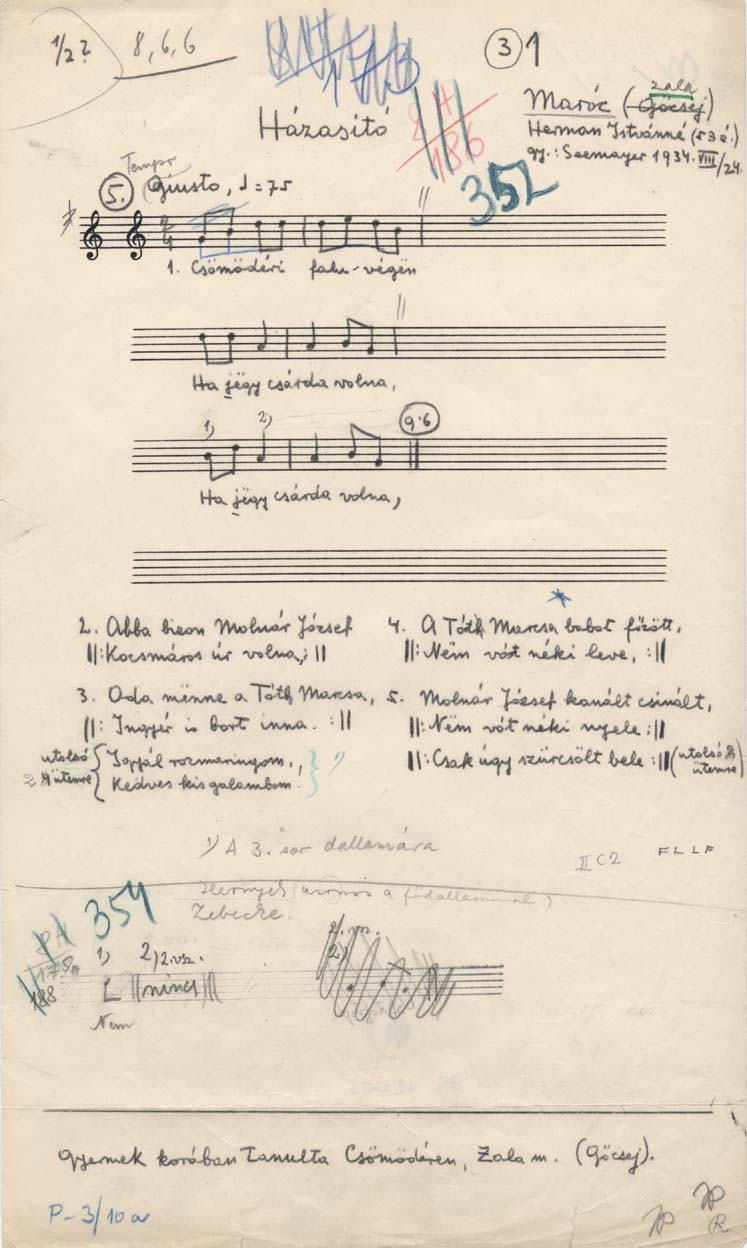 1/2? 8, 6, 6
③ 1
Maróc (Zala Göcsej)
Herman Istvánné (53 é.)
gy.: Seemayer 1934. VIII/24.
Házasító
186
352
Tempo
5. Giusto, ♩=75
2/4
1. Csömödéri falu-végën
Ha jëgy csárda volna,
1) 2) 9·6
Ha jëgy csárda volna,
2. Abba bizon Molnár József
||: Kocsmáros úr volna, :||
3. Oda mënne a Tóth Marcsa,
||: Ingyér is bort inna. :||
utolsó 2 ütemre
rozmaringom,
Kedves kis galambom. 1)
4. A Tóth Marcsa babot főzött,
||: Nëm vót néki leve, :||
5. Molnár József kanált csinált,
||: Nëm vót néki nyele :||
||: Csak úgy szürcsölt bele :|| (utolsó 2 ütemre)
1) A 3. sor dallamára
II C2 FLLF
Hernyék (azonos a fődallammal)
Zebecke.
354
188
1) 2) 2. vsz.
nincs
Nem
gyermek korában tanulta Csömödéren, Zala m. (Göcsej).
P-3/10a
R